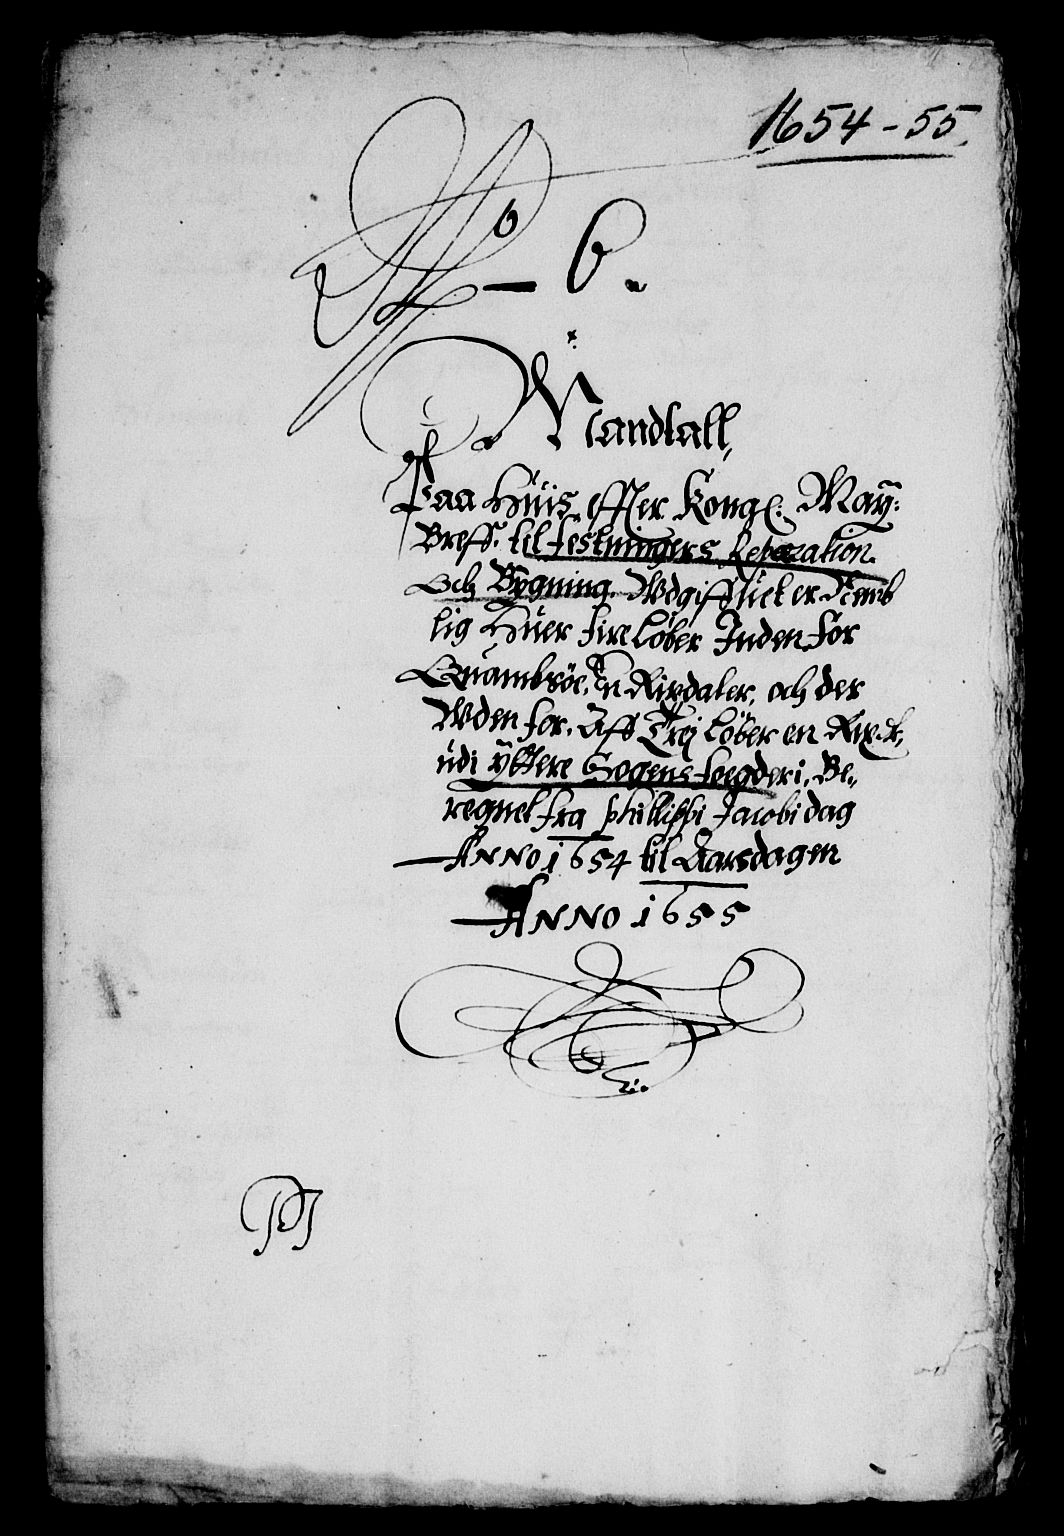 1654-55.
No - 6.
Mandtall,
Paa Huis effter Kongl: May:
Breff. til festningers Reparation.
Och Bÿgning. Wdgifft
lig Huer fire løber Inden for
Quambsøe, En Rixdaler, och der
Wden for. Aff Trej løber en Rix dr,
udi ÿttere Sogens foegderi, Be,,
regnet fra Phillippi Jacobi dag
ANNO 1654 til Aarsdagen
ANNO 1655